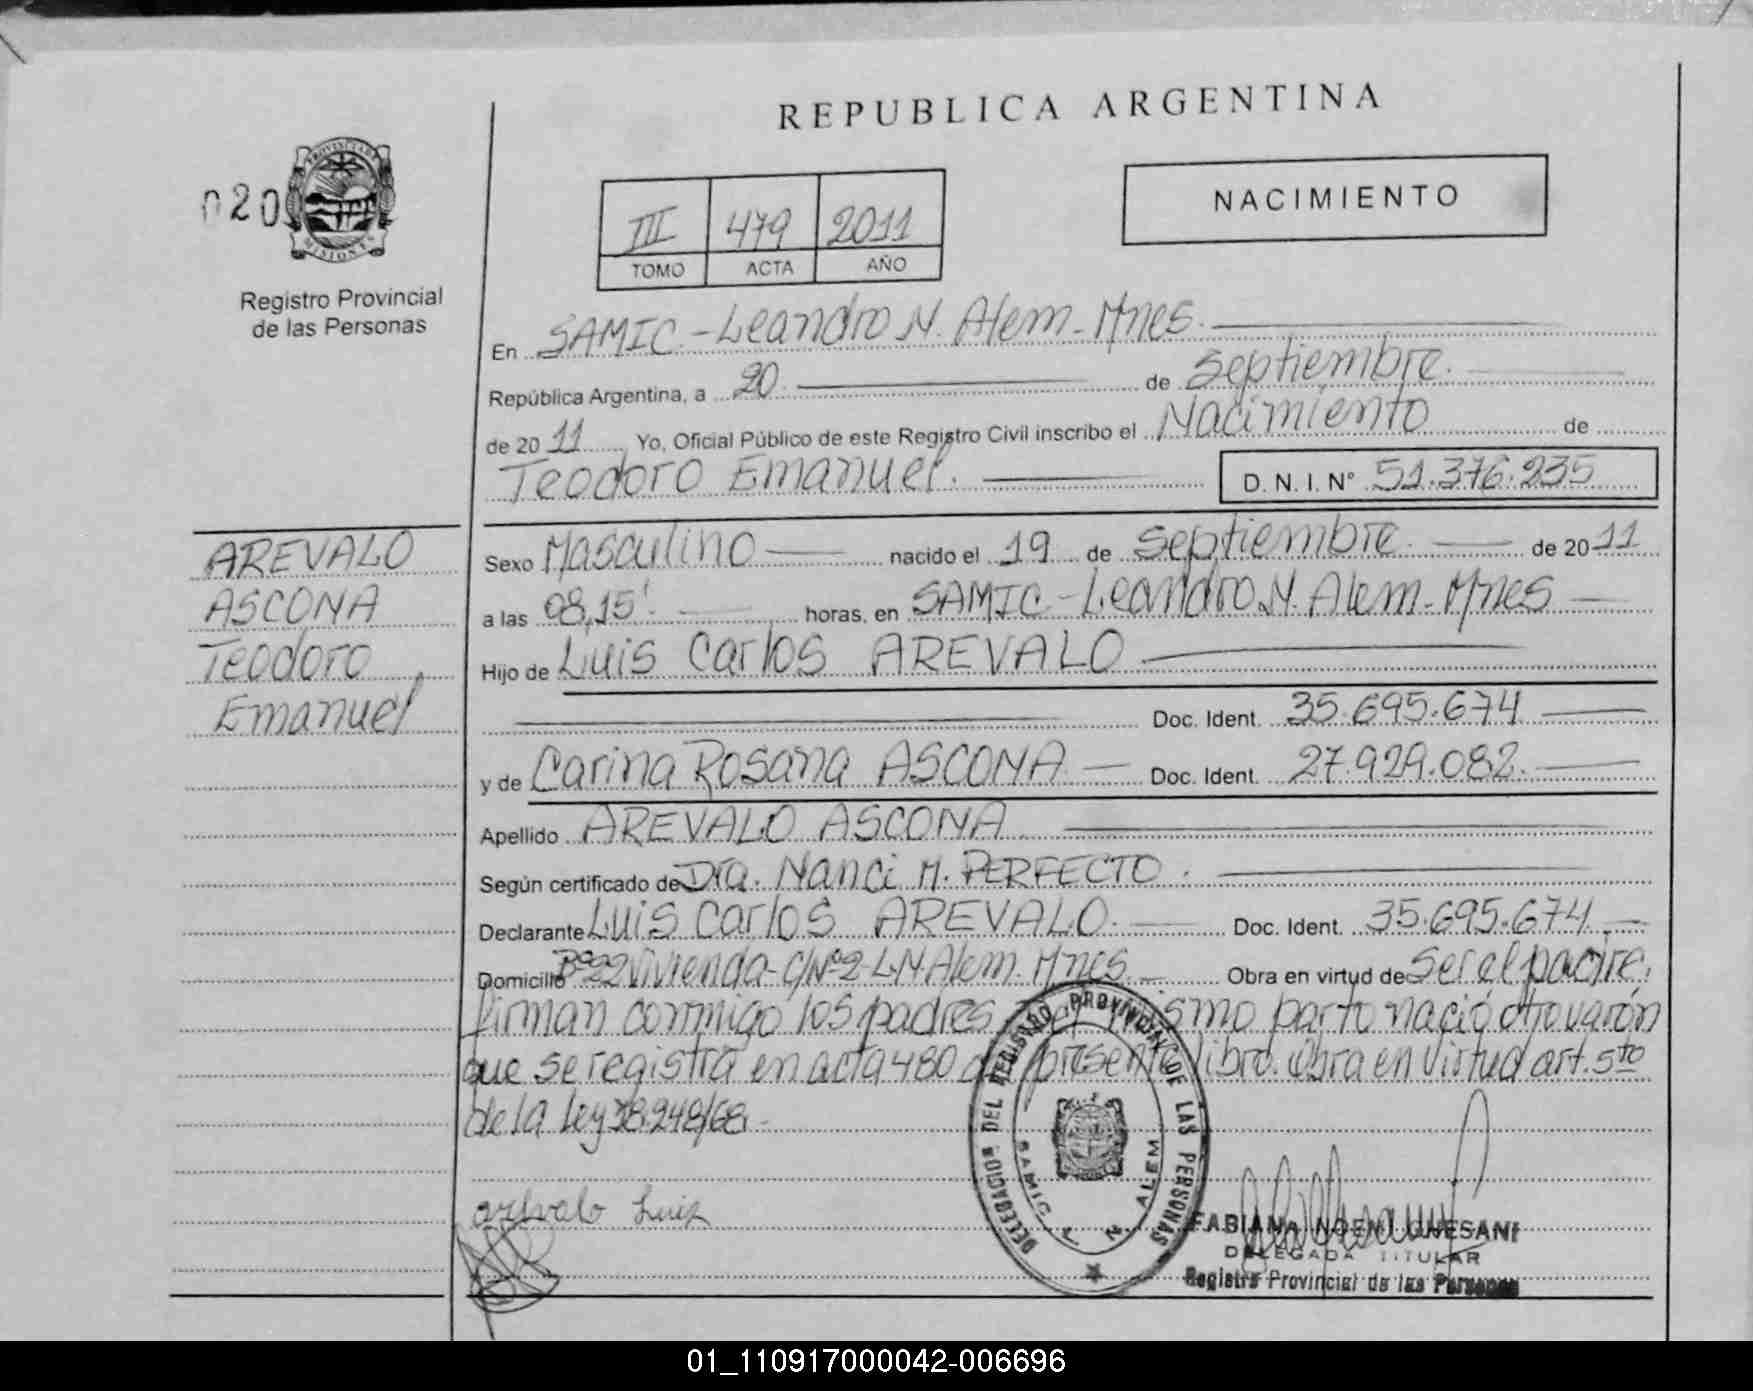 REPUBLICA ARGENTINA
020
PROVINCIA DE
MISIONES
Registro Provincial
de las Personas
III 479 2011
TOMO ACTA AÑO
NACIMIENTO
En SAMIC - Leandro N. Alem - Mnes.
República Argentina, a 20 de Septiembre.
de 2011 Yo, Oficial Público de este Registro Civil inscribo el Nacimiento de
Teodoro Emanuel. D. N. I. N° 51.376.235
AREVALO
ASCONA
Teodoro
Emanuel
Sexo Masculino nacido el 19 de Septiembre de 2011
a las 08,15'. horas, en SAMIC - Leandro N. Alem - Mnes
Hijo de Luis Carlos AREVALO
Doc. Ident. 35.695.674
y de Carina Rosana ASCONA Doc. Ident. 27.929.082.
Apellido AREVALO ASCONA
Según certificado de Dra. Nanci M. PERFECTO.
Declarante Luis Carlos AREVALO. Doc. Ident. 35.695.674.
Domicilio Bº 22 Vivienda - C/Nº2 - L.N. Alem. Mnes. Obra en virtud de Ser el padre.
firman conmigo los padres mismo parto nació otro varón
que se registra en acta 480 presente libro. Obra en virtud art. 5to
de la Ley 18.248/68.
DELEGACION DEL REGISTRO PROVINCIAL DE LAS PERSONAS
SAMIC L. N. ALEM
arevalo Luis
FABIANA NOEMI GNESANI
DELEGADA TITULAR
Registro Provincial de las Personas
01_110917000042-006696